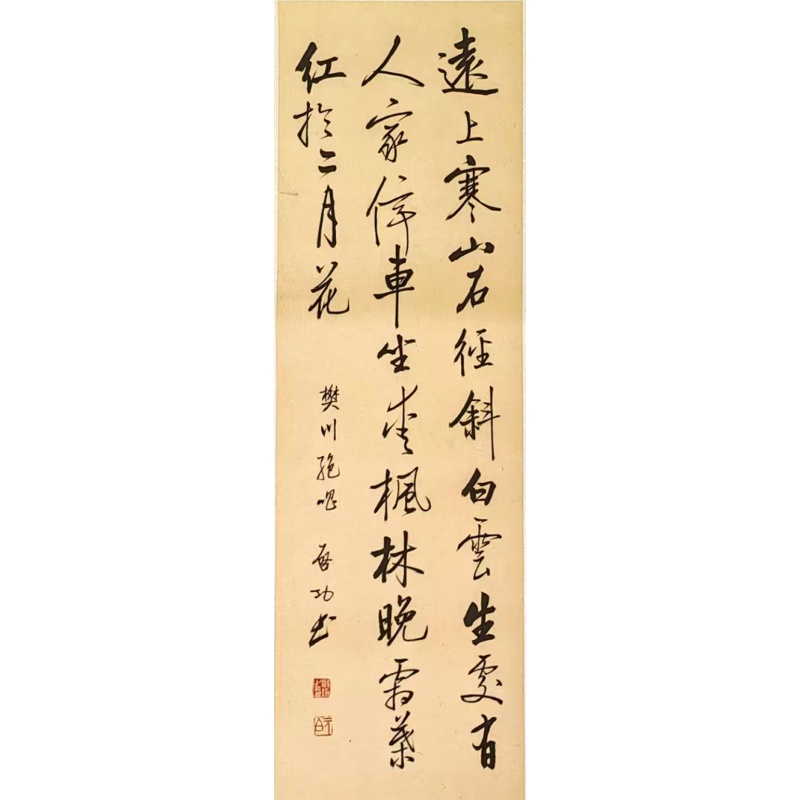 遠上寒山石徑斜白雲生處有
人家停車坐愛楓林晚霜葉
紅於二月花
樊川絕唱 啓功書